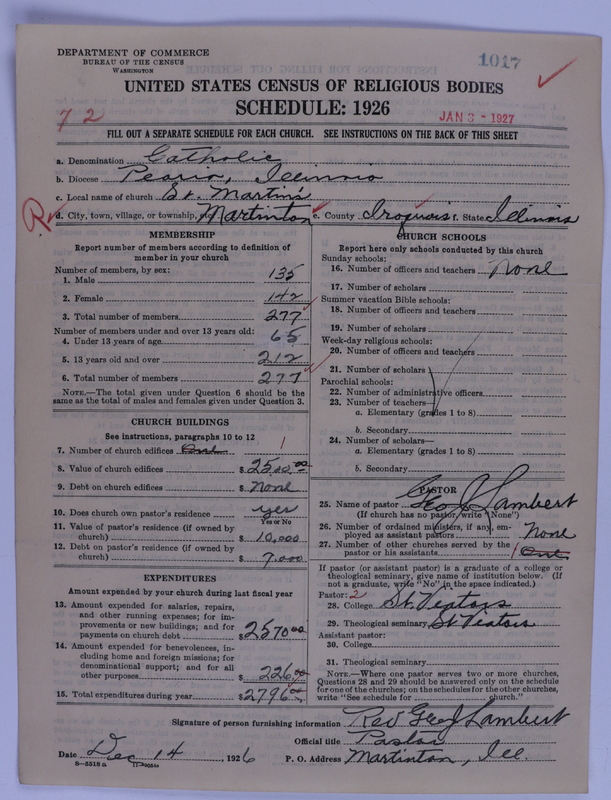 DEPARTMENT OF COMMERCE
BUREAU OF THE CENSUS
WASHINGTON
1017
UNITED STATES CENSUS OF RELIGIOUS BODIES
SCHEDULE: 1926
72
JAN 3 - 1927
FILL OUT A SEPARATE SCHEDULE FOR EACH CHURCH. SEE INSTRUCTIONS ON THE BACK OF THIS SHEET
a. Denomination Catholic
b. Diocese Peoria, Illinois
c. Local name of church St. Martin's
R
d. City, town, village, or township, etc. Martinton e. County Iroquois f. State Illinois
MEMBERSHIP
Report number of members according to definition of
member in your church
Number of members, by sex:
1. Male 135
2. Female 142
3. Total number of members 277
Number of members under and over 13 years old:
4. Under 13 years of age 65
5. 13 years old and over 212
6. Total number of members 277
NOTE.—The total given under Question 6 should be
same as the total of males and females given under Question 3.
CHURCH BUILDINGS
See instructions, paragraphs 10 to 12
7. Number of church edifices One 1
8. Value of church edifices $ 2500.00
9. Debt on church edifices $ None
10. Does church own pastor's residence yes
Yes or No
11. Value of pastor's residence (if owned by
church) $ 10,000
12. Debt on pastor's residence (if owned by
church) $ 7.000
EXPENDITURES
Amount expended by your church during last fiscal year
13. Amount expended for salaries, repairs,
and other running expenses; for im-
provements or new buildings; and for
payments on church debt $ 2570.00
14. Amount expended for benevolences, in-
cluding home and foreign missions; for
denominational support; and for all
other purposes $ 226.00
15. Total expenditures during year $ 2796.00
CHURCH SCHOOLS
Report here only schools conducted by this church
Sunday schools:
16. Number of officers and teachers None
17. Number of scholars
Summer vacation Bible schools:
18. Number of officers and teachers
19. Number of scholars
Week-day religious schools:
20. Number of officers and teachers
21. Number of scholars
Parochial schools:
22. Number of administrative officers
23. Number of teachers—
a. Elementary (grades 1 to 8)
b. Secondary
24. Number of scholars—
a. Elementary (grades 1 to 8)
b. Secondary
PASTOR
25. Name of pastor Geo J Lambert
(If church has no pastor, write "None")
26. Number of ordained ministers, if any, em-
ployed as assistant pastors None
27. Number of other churches served by the
pastor or his assistants 1 One
If pastor (or assistant pastor) is a graduate of a college or
theological seminary, give name of institution below. (If
not a graduate, write "No" in the space indicated.)
Pastor: 2
28. College St. Viators
29. Theological seminary St Viators
Assistant pastor:
30. College
31. Theological seminary
NOTE.—Where one pastor serves two or more churches,
Questions 28 and 29 should be answered only on the schedule
for one of the churches; on the schedules for the other churches,
write "See schedule for church."
Signature of person furnishing information Rev Geo J Lambert
Official title Pastor
Date Dec 14, 1926 P. O. Address Martinton, Ill.
8—5518 a